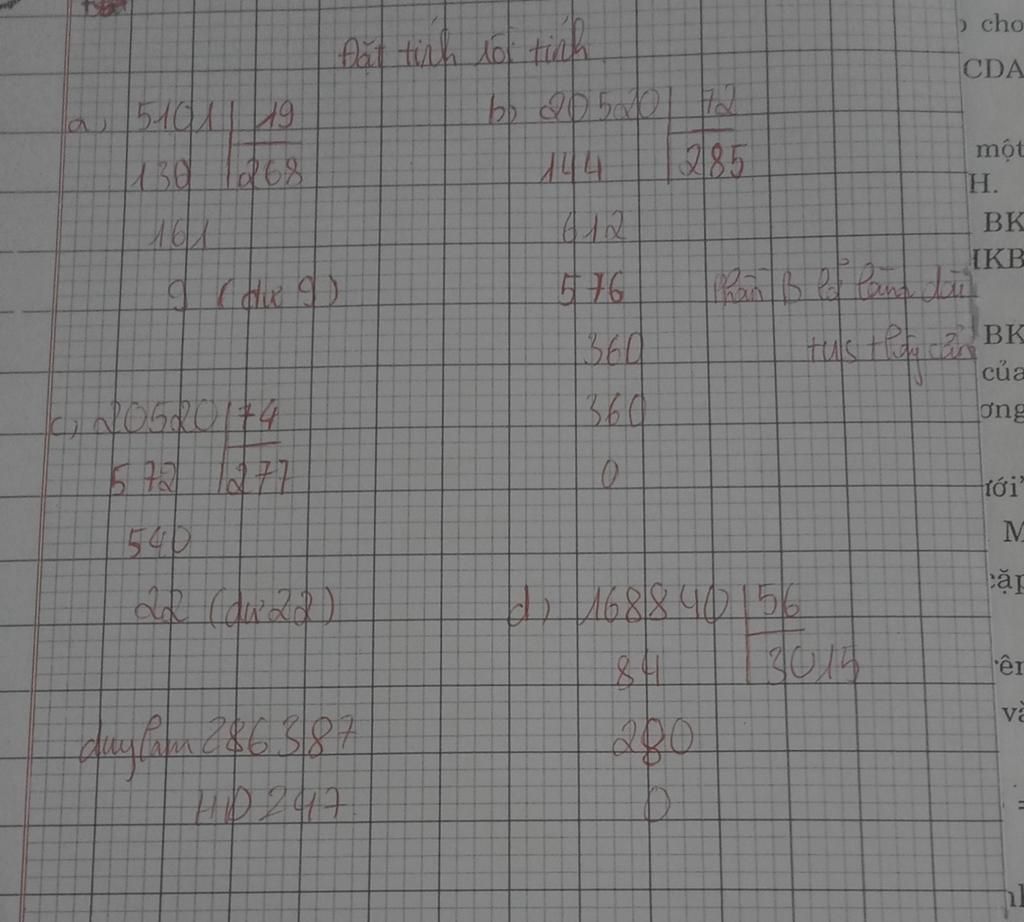 Đặt tính rồi tính
a, 5101 19
130 268
161
9 (dư 9)
b) 20520 72
144 285
612
576
360
360
0
Phần B
c, 20520 74
572 277
540
22 (dư 22)
d, 168840 56
84 3015
280
0
duylam286387
HD247
) cho
CDA
một
H.
BK
IKB
BK
của
ơng
tới
M
cặp
ên
và